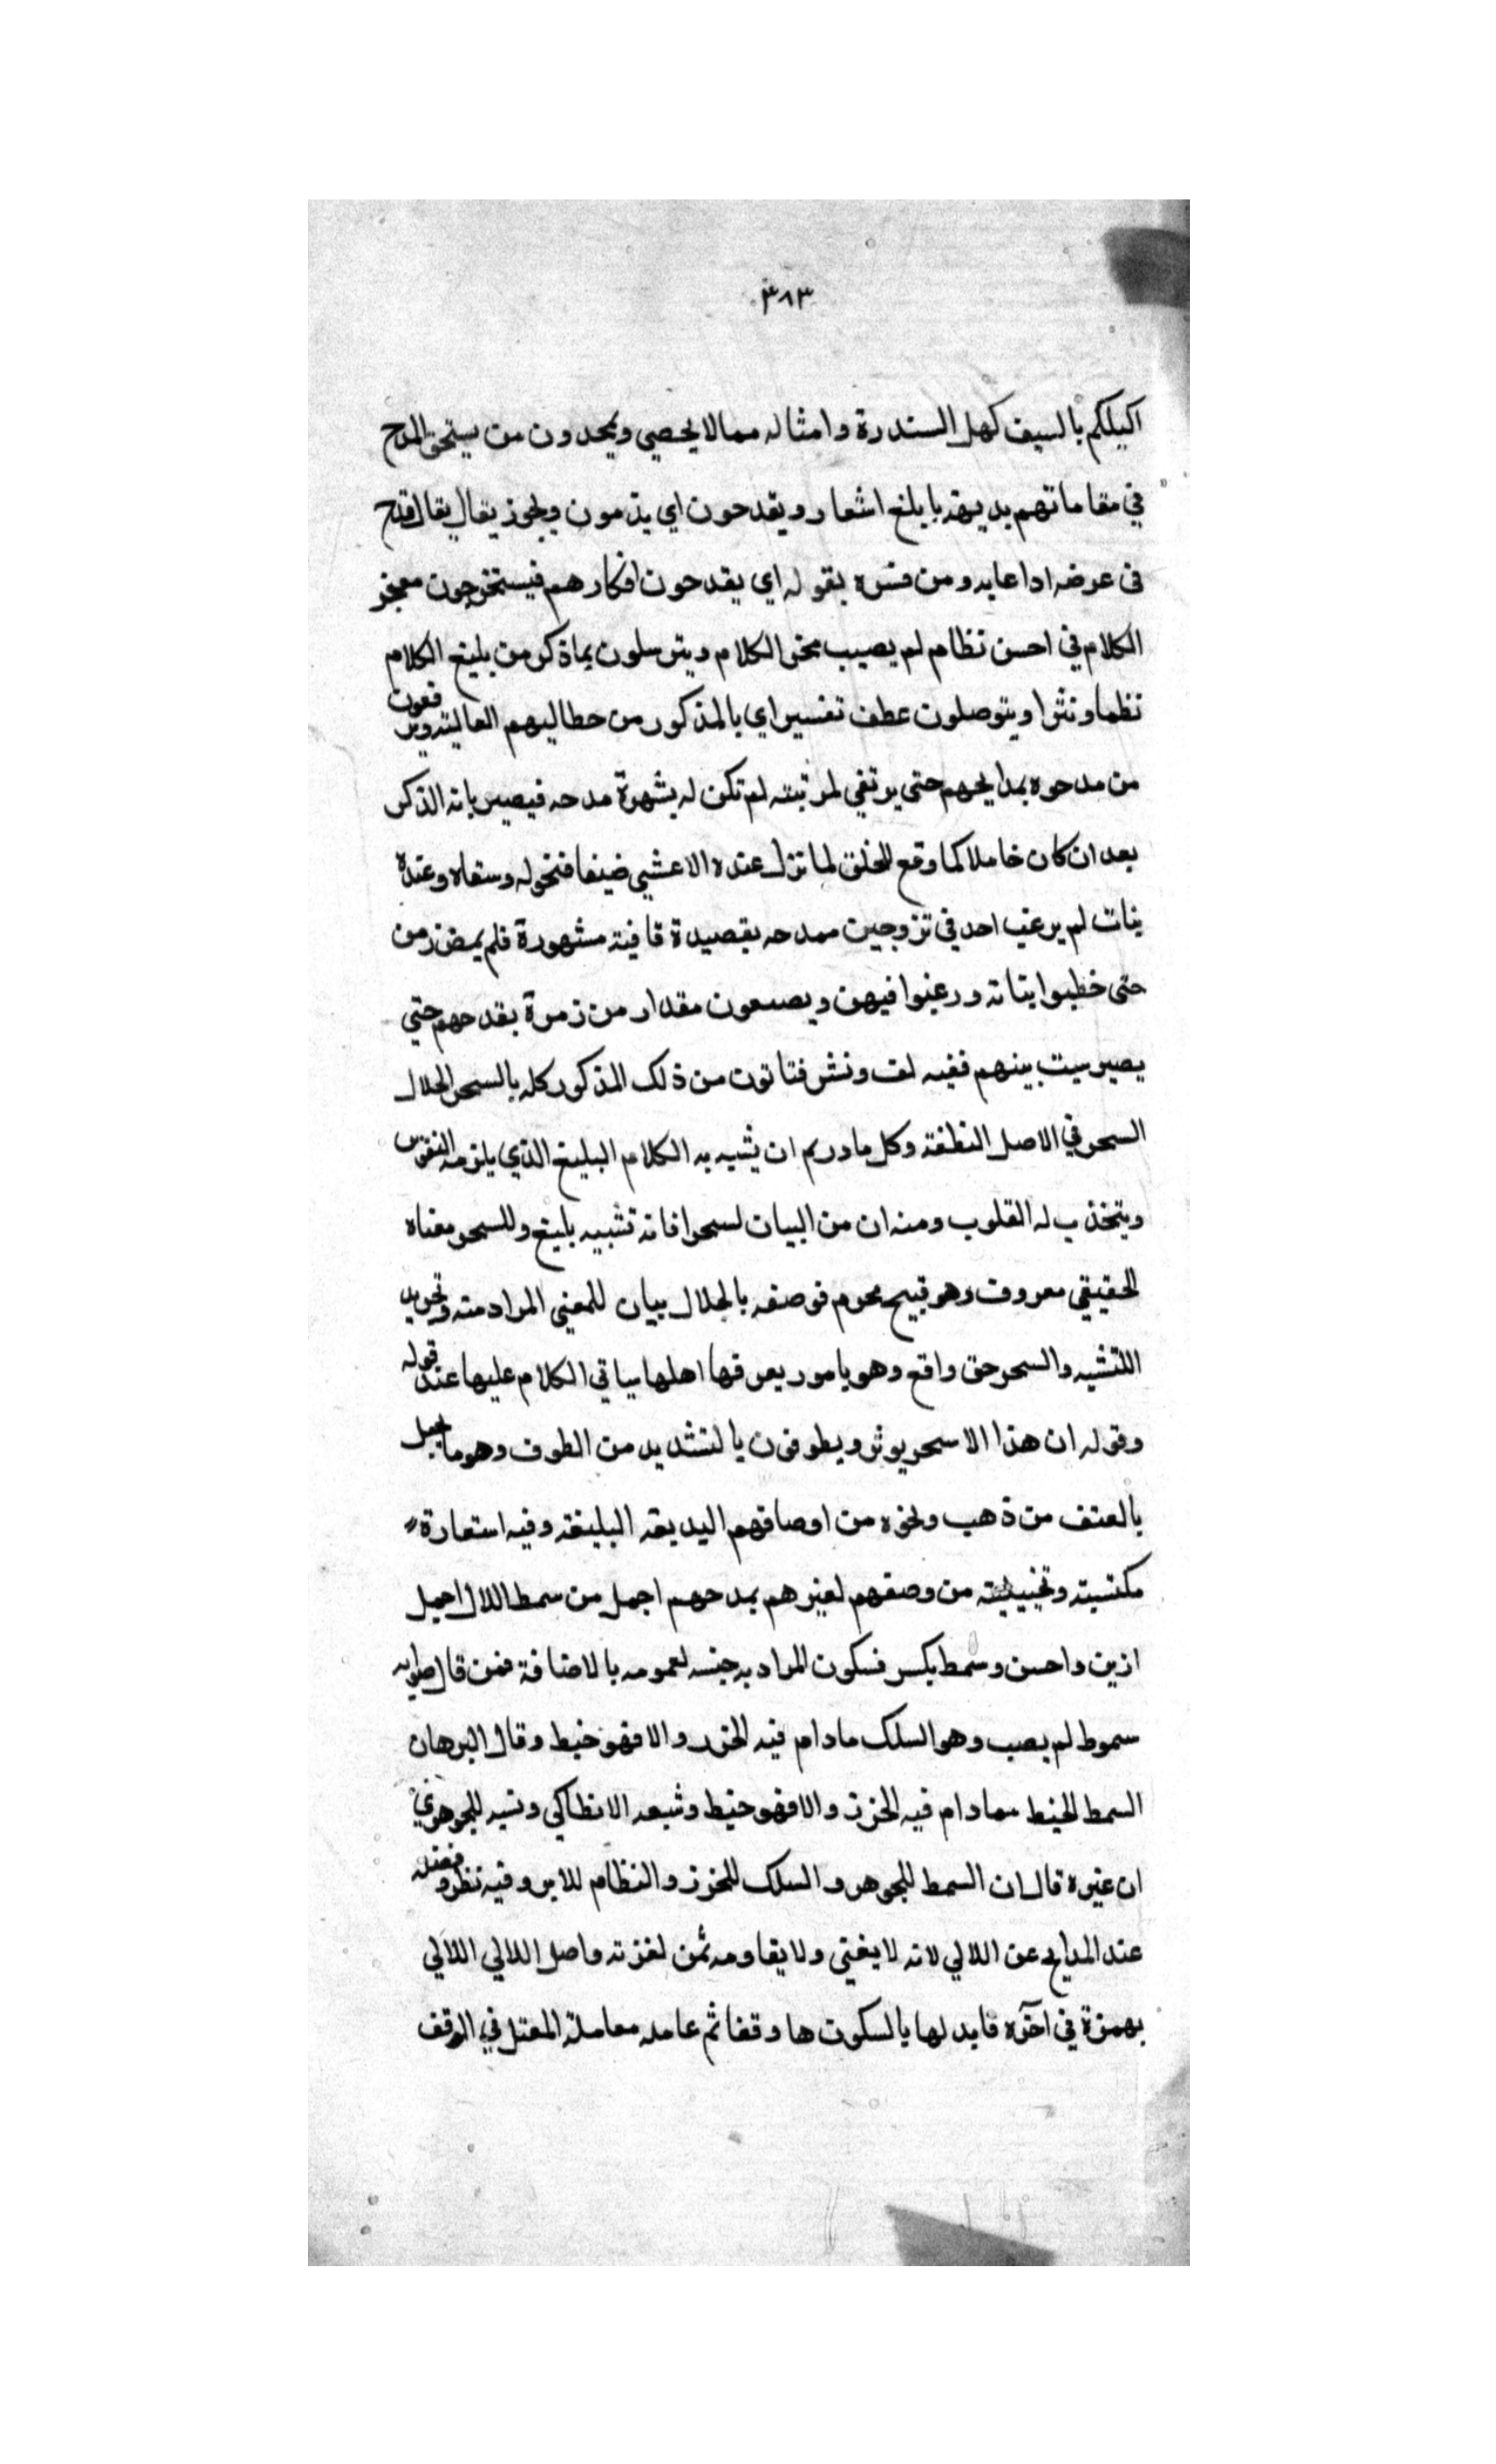 ٣٨٣
اكيلكم بالسيف كهل السندرة وامثاله ممالا يحصي ويمدحون من يستحق المدح
في مقاماتهم بديهة بابلغ اشعار ويقدحون اي يذمون ويجوز يقال يقال قدح
في عرضه اذا عابه ومن فسره بقوله اي يقدحون افكارهم فيستخرجون معجز
الكلام في احسن نظام لم يصيب محز الكلام ويتوسلون بماذكر من بليغ الكلام
نظما ونثرا ويتوصلون عطف تفسير اي بالمذكور من حطاليهم العالية ويرفعون
من مدحوه بمدايحهم حتي يرتقي لمرتبته لم تكن له بشهرة مدحه فيصير بانه الذكر
بعد ان كان خاملا كما وقع للحلق لما نزل عنده الاعشي ضيفا فنحوله وسقاه وعنده
بنات لم يرغب احد في تزوجين ممدحه بقصيدة قافية مشهورة فلم يمض زمن
حتي خطبوا بناته ورغبوا فيهن ويصنعون مقدار من زمرة بقدحهم حتي
يصير سيت بينهم ففيه لف ونشر فتاتون من ذلك المذكور كله بالسحر الحلال
السحر في الاصل النطفة وكل مادر يم ان يشبه به الكلام البليغ الذي يلزمه النفوس
ويتخذب له القلوب ومنه ان من البيان لسحرا فانه تشبيه بليغ وللسحر معناه
الحقيقي معروف وهو قبيح محرم فوصفه بالحلال بيان للمعني المراد منه وتجريد
اللتشبيه والسحر حق واقع وهو بامور يعرفها اهلها سياتي الكلام عليها عند قوله
وقوله ان هذا الا سحر يوثر ويطوفون بالتشديد من الطوف وهو ما يجعل
بالعنف من ذهب ونحوه من اوصافهم البديعة البليغة وفيه استعارة
مكنيته وتخييلية من وصفهم لغيرهم بمدحهم اجمل من سمط اللال اجمل
ازين واحسن وسمط بكسر فسكون المراد به جنسه لعمومه بالاضافة فمن قال صوابه
سموط لم يصب وهو السلك مادام فيه الخرز والا فهو خيط وقال البرهان
السمط الخيط مادام فيه الخرز والا فهو خيط وتبعه الانطاكي ونسبه للجوهري
ان غيره قال ان السمط للجوهر والسلك للخرز والنظام للابر وفيه نظر وفضله
عند المدايح عن اللالي لانه لا يغني ولا يقاومه ثمن لعزته واصل اللالي اللالي
بهمزة في آخره فابدلها بالسكون ها وقفا ثم عامله معاملة المعتل في الوقف